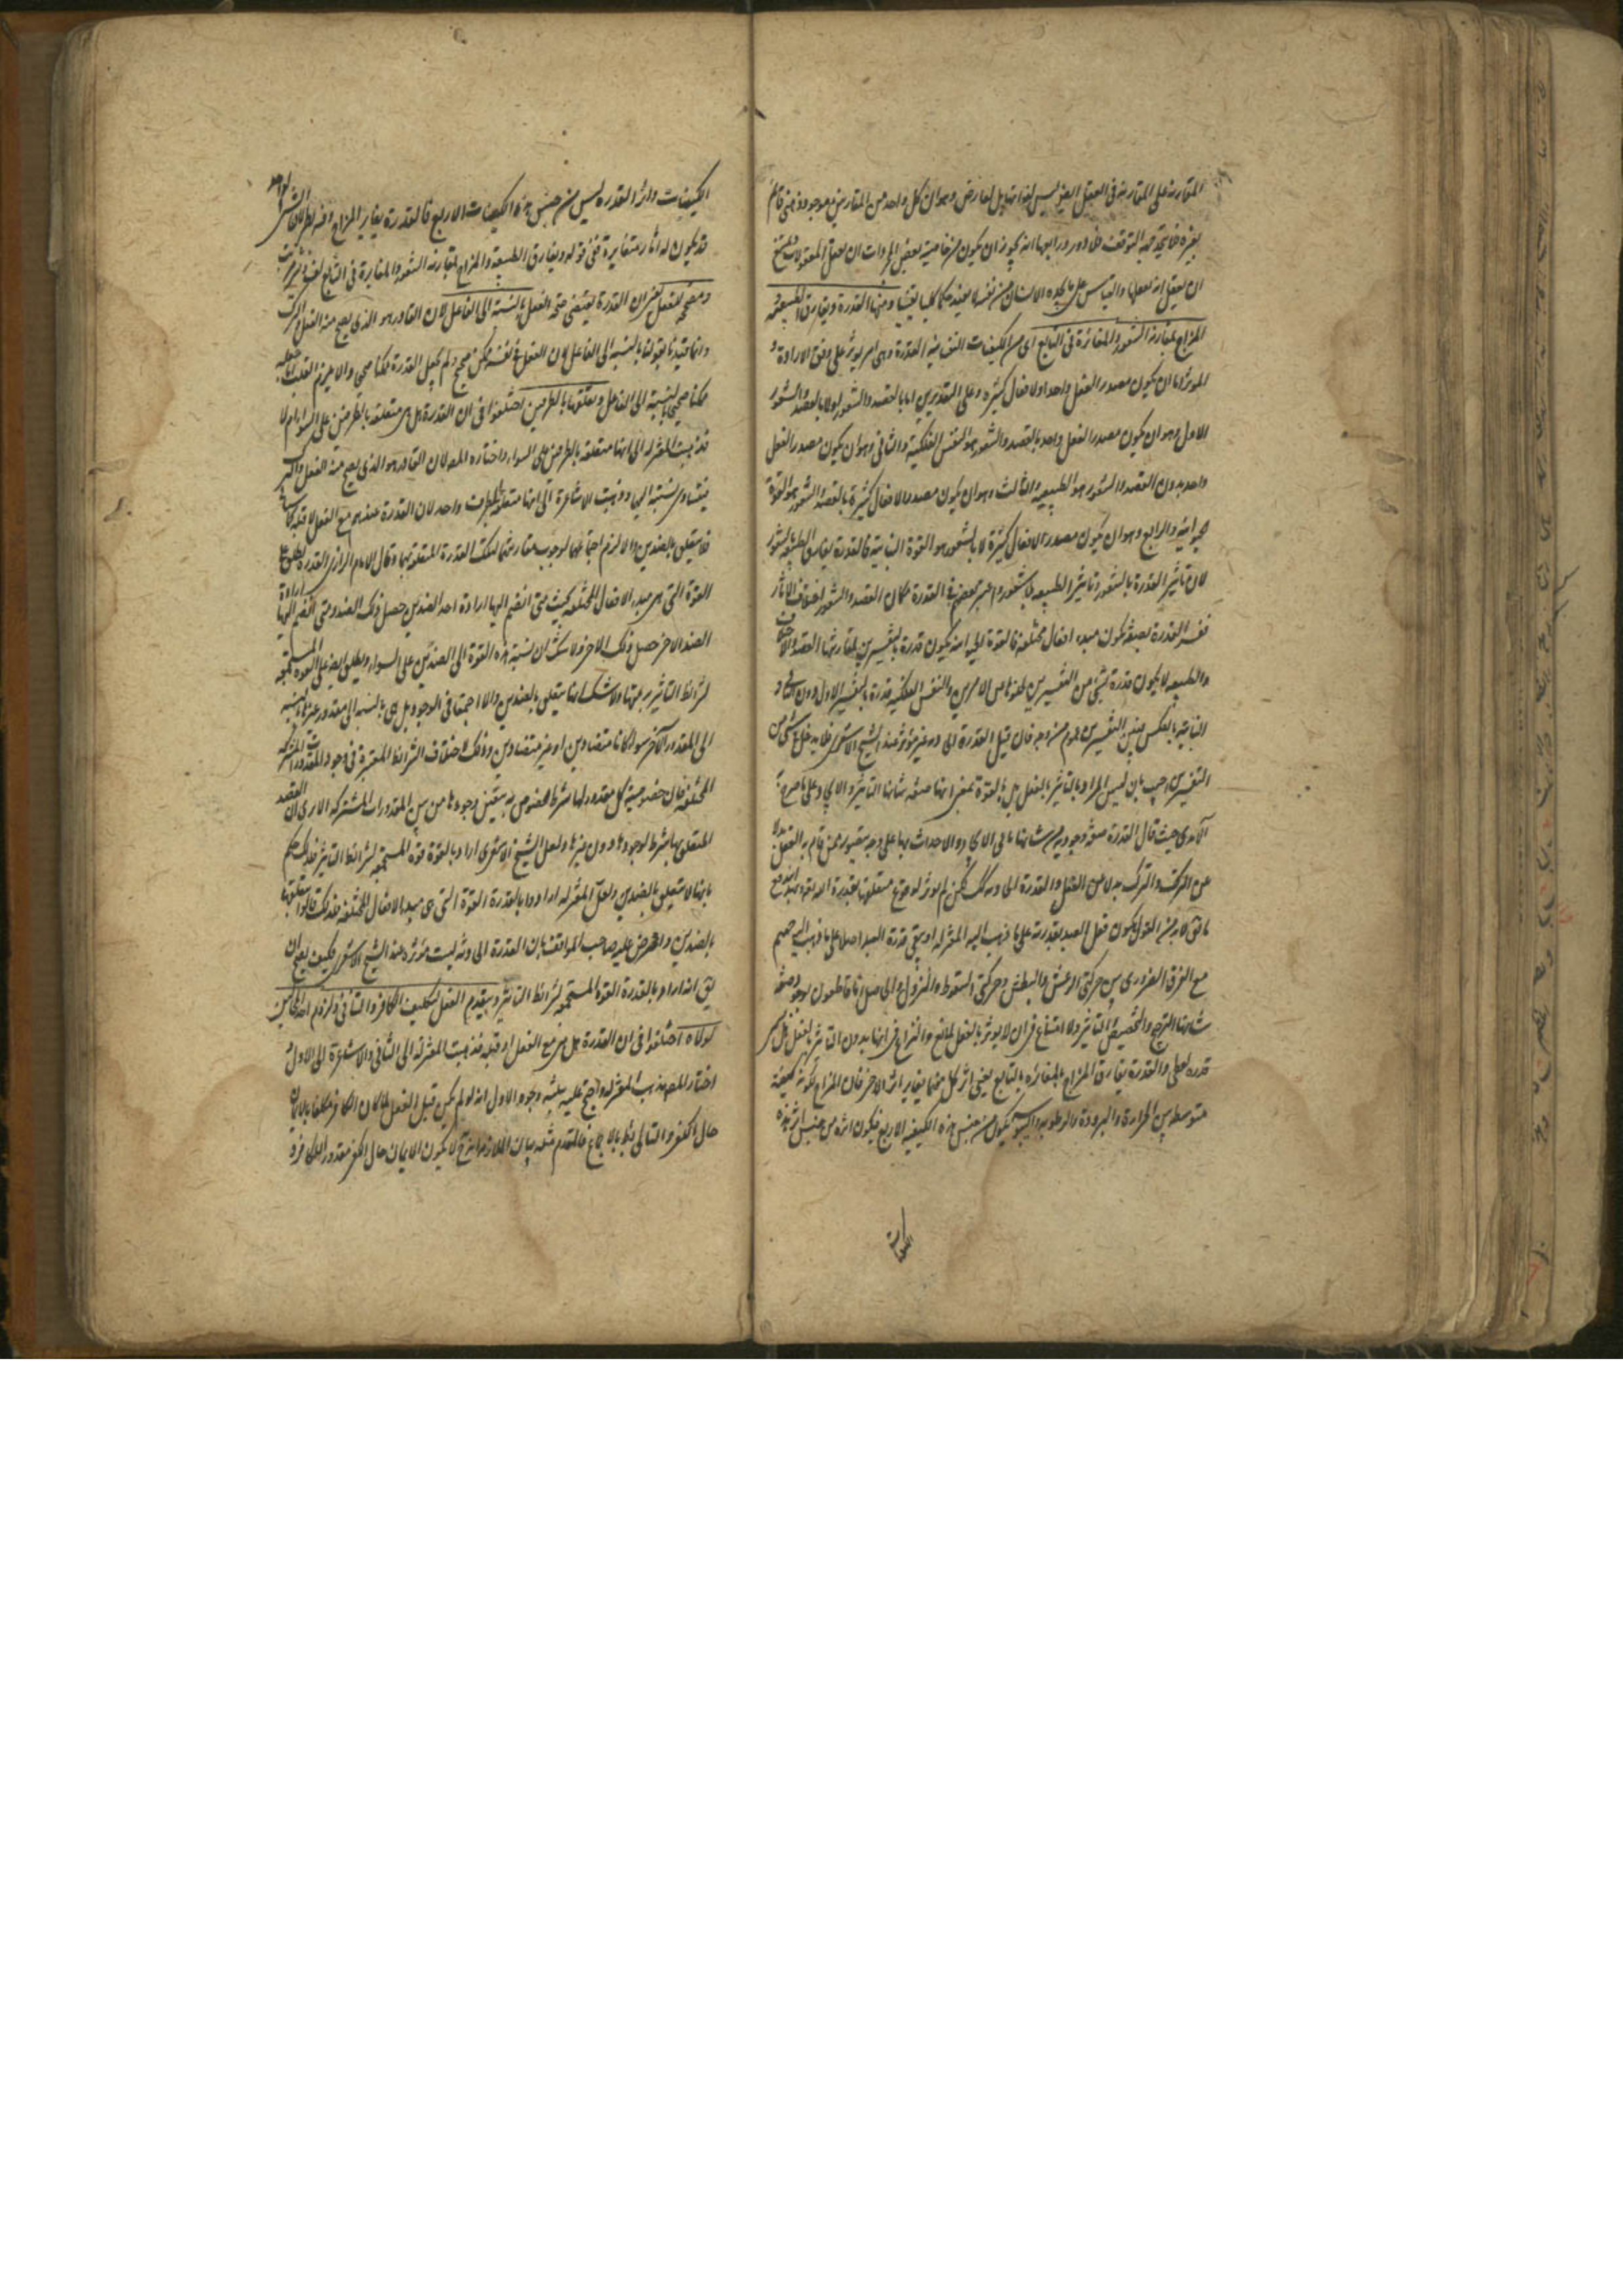 المقارنة على المقارنة فى العقل الغير ليس لذاتها بل لعارض وهو ان كل واحد من المقارنين موجود ذهنى قائم
بغيره فلا يتجه التوقف فلا دور ورابعها انه يجوز ان يكون من خاصية بعض المجردات ان يعقل المعقولات ويمتنع
ان يعقل انه يعقلها والقياس على ما يجده الانسان من نفسه لا يفيد حكما كليا يقينيا ومنها القدرة ويفارق الطبيعة و
المزاج بمقارنة الشعور والمغائرة فى التابع اى من الكيفيات النفسانية القدرة وهى امر يؤثر على وفق الارادة و
المؤثر اما ان يكون مصدر الفعل واحد او لافعال كثيرة وعلى التقديرين اما بالقصد والشعور او لا بالقصد والشعور
الاول وهو ان يكون مصدر الفعل واحد بالقصد والشعور هو النفس الفلكية والثانى وهو ان يكون مصدر الفعل
واحد بدون القصد والشعور هو الطبيعة والثالث وهو ان يكون مصدر الافعال كثيرة بالقصد والشعور هو القوة
الحيوانية والرابع وهو ان يكون مصدر الافعال كثيرة لا بالشعور هو القوة النباتية فالقدرة يفارق الطبيعة بالشعور
لان تأثير القدرة بالشعور وتأثير الطبيعة بلا شعور واعتبر بعضهم فى القدرة مكان القصد والشعور اختلاف الاثار
ففسر القدرة بصفة يكون مبدء افعال مختلفة فالقوة الحيوانية يكون قدرة بالتفسيرين لمقارنتها القصد والاختلاف
والطبيعة لا يكون قدرة بشئ من التفسيرين لخلوها من الامرين والنفس الفلكية قدرة بالتفسير الاول دون الثانى و
النباتية بالعكس فبين التفسيرين عموم من وجه فان قيل القدرة الحادثة غير مؤثرة عند الشيخ الاشعرى فلا يدخل فى شئ من
التفسيرين اجيب بان ليس المراد بالتأثير بالفعل بل بالقوة بمعنى انها صفة شأنها التأثير والايجاد على ما صرح به
الآمدى حيث قال القدرة صفة وجودية من شأنها تأتى الايجاد والاحداث بها على وجه يتصور ممن قام به الفعل بدلا
عن الترك والترك بدلا عن الفعل والقدرة الحادثة كذلك لكن لم تؤثر لوقوع متعلقها بقدرة الله تعالى وبهذا يندفع
ما يق لا بد من القول بكون فعل العبد بقدرته على ما ذهب اليه المعتزلة او ينفى قدرة العبد اصلا على ما ذهب اليه جهم
مع الفرق الضرورى بين حركتى الرعش والبطش وحركتى السقوط والنزول والحاصل انا قاطعون بوجود صفة
شأنها الترجيح والتخصيص والتأثير ولا امتناع فى ان لا يؤثر بالفعل لمانع والنزاع فى انها بدون التأثير بالفعل هل يسمى
قدرة لفظى والقدرة يفارق المزاج بالمغائرة بالتابع يعنى اثر كل منهما يغاير اثر الاخر فان المزاج لكونه كيفية
متوسطة بين الحرارة والبرودة والرطوبة واليبوسة يكون من جنس هذه الكيفية الاربع فيكون اثره من جنس اثر هذه
الكيفيات
الكيفيات واثر القدرة ليس من جنس هذه الكيفيات الاربع فالقدرة يغاير المزاج وفيه نظر لان الشئ الواحد
قد يكون له اثار متغايرة ففى قوله ويفارق الطبيعة والمزاج بمقارنة الشعور والمغايرة فى التابع لف ونشر مرتب
ومصحح للفعل يعنى ان القدرة يقتضى صحة الفعل بالنسبة الى الفاعل لان القادر هو الذى يصح منه الفعل والترك
وانما قيدنا بقولنا بالنسبة الى الفاعل لان الفعل فى نفسه ممكن صحيح ولم يجعل القدرة ممكنا صحيحا والا يلزم القلب بل جعله
ممكنا صحيحا بالنسبة الى الفاعل وتعلقها بالطرفين اختلفوا فى ان القدرة هل هى متعلقة بالطرفين على السواء ام لا
فذهبت المعتزلة الى انها متعلقة بالطرفين على السواء واختاره المص لان القادر هو الذى يصح منه الفعل والترك
فيتساوى نسبته اليهما وذهبت الاشاعرة الى انها متعلقة بطرف واحد لان القدرة عندهم مع الفعل لا قبله كما سيأتى
فلا يتعلق بالضدين والا لزم اجتماعهما لوجوب مقارنتهما لتلك القدرة المتعلقة بهما وقال الامام الرازى القدرة يطلق على
القوة التى هى مبدء الافعال المختلفة بحيث متى انضم اليها ارادة احد الضدين حصل ذلك الضد ومتى انضم اليها ارادة
الضد الاخر حصل ذلك الاخر ولا شك ان نسبة هذه القوة الى الضدين على السواء ويطلق ايضا على القوة المستجمعة
لشرائط التأثير برمتها ولا شك انها لا يتعلق بالضدين والا اجتمعا فى الوجود بل هى بالنسبة الى مقدور غيرها بالنسبة
الى المقدور الآخر سواء كانا متضادين او غير متضادين وذلك لاختلاف الشرائط المعتبرة فى وجود المقدورات المشتركة
المختلفة فان خصوصية كل مقدور لها شرط مخصوص به يتعين وجودها من بين المقدورات المشتركة الا يرى ان القصد
المتعلق بها شرط لوجودها دون غيرها ولعل الشيخ الاشعرى اراد بالقوة قوة المستجمعة لشرائط التأثير فلذلك حكم
بانها لا يتعلق بالضدين ولعل المعتزلة ارادوا بالقدرة القوة التى هى مبدء الافعال المختلفة فلذلك قالوا بتعلقها
بالضدين واعترض عليه صاحب المواقف بان القدرة الحادثة ليست مؤثرة عند الشيخ الاشعرى فكيف يصح ان
يق انه اراد بالقدرة القوة المستجمعة لشرائط التأثير ويتقدم الفعل لتكليف الكافر والتنافى ولزوم احد المحالين
لولاه اختلفوا فى ان القدرة هل هى مع الفعل او قبله فذهبت المعتزلة الى الثانى والاشاعرة الى الاول
اختار المص مذهب المعتزلة واحتج عليه بثلثة وجوه الاول انه لو لم يكن قبل الفعل لما كان الكافر مكلفا بالايمان
حال الكفر والتالى بط بالاجماع فالمقدم مثله بيان الملازمة انه ح لا يكون الايمان حال الكفر مقدورا للكافر و